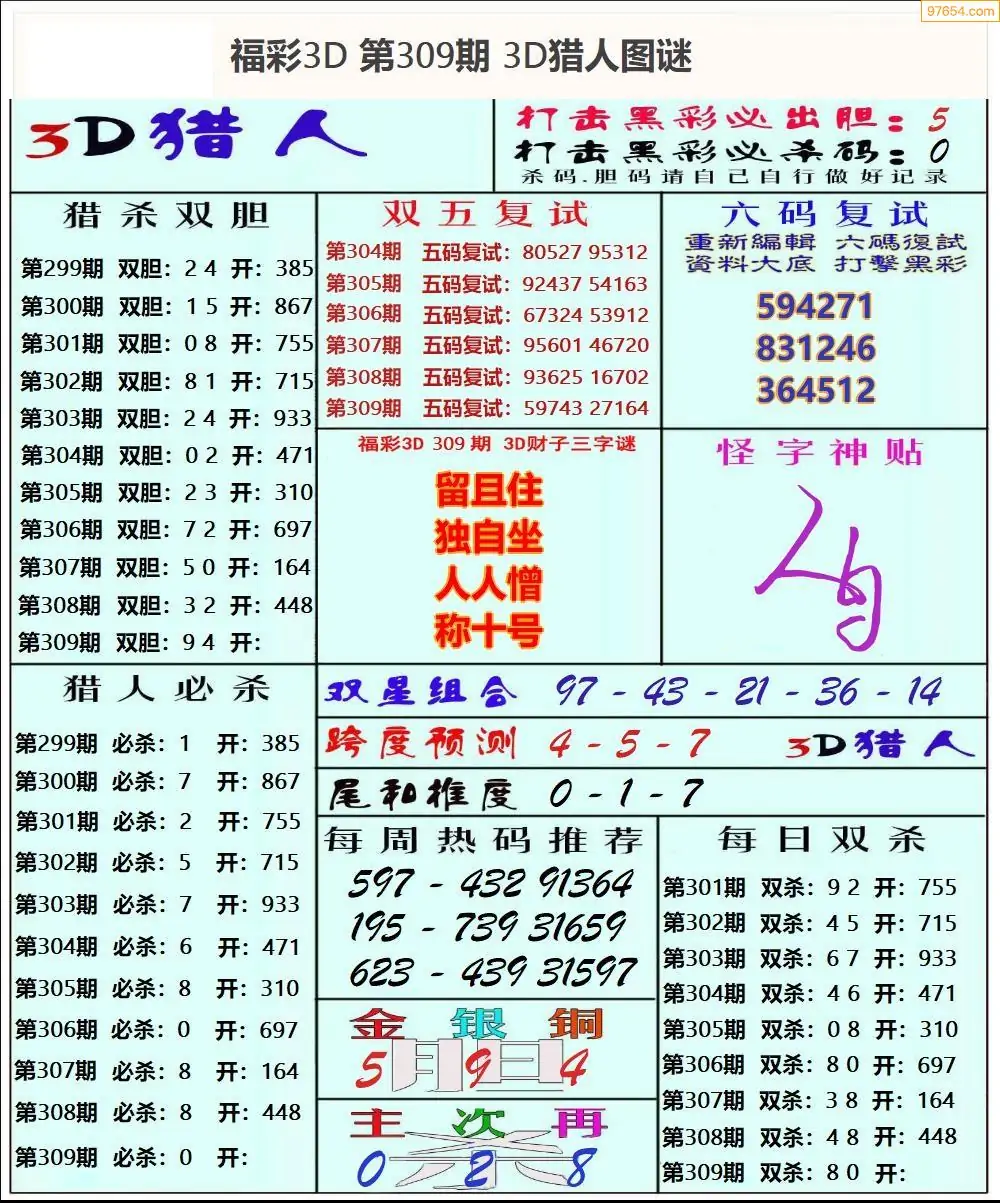 97654.com
福彩3D 第309期 3D猎人图谜
3D猎人
打击黑彩必出胆：5
打击黑彩必杀码：0
杀码.胆码请自己自行做好记录
猎杀双胆
第299期 双胆：24 开：385
第300期 双胆：15 开：867
第301期 双胆：08 开：755
第302期 双胆：81 开：715
第303期 双胆：24 开：933
第304期 双胆：02 开：471
第305期 双胆：23 开：310
第306期 双胆：72 开：697
第307期 双胆：50 开：164
第308期 双胆：32 开：448
第309期 双胆：94 开：
双五复试
第304期 五码复试：80527 95312
第305期 五码复试：92437 54163
第306期 五码复试：67324 53912
第307期 五码复试：95601 46720
第308期 五码复试：93625 16702
第309期 五码复试：59743 27164
六码复试
重新編輯 六碼復試
資料大底 打擊黑彩
594271
831246
364512
福彩3D 309期 3D财子三字谜
留且住
独自坐
人人憎
称十号
怪字神贴
猎人必杀
第299期 必杀：1 开：385
第300期 必杀：7 开：867
第301期 必杀：2 开：755
第302期 必杀：5 开：715
第303期 必杀：7 开：933
第304期 必杀：6 开：471
第305期 必杀：8 开：310
第306期 必杀：0 开：697
第307期 必杀：8 开：164
第308期 必杀：8 开：448
第309期 必杀：0 开：
双星组合 97-43-21-36-14
跨度预测 4-5-7 3D猎人
尾和推度 0-1-7
每周热码推荐
597-432 91364
195-739 31659
623-439 31597
金银铜
胆
5 9 4
主次再
杀
0 2 8
每日双杀
第301期 双杀：92 开：755
第302期 双杀：45 开：715
第303期 双杀：67 开：933
第304期 双杀：46 开：471
第305期 双杀：08 开：310
第306期 双杀：80 开：697
第307期 双杀：38 开：164
第308期 双杀：48 开：448
第309期 双杀：80 开：